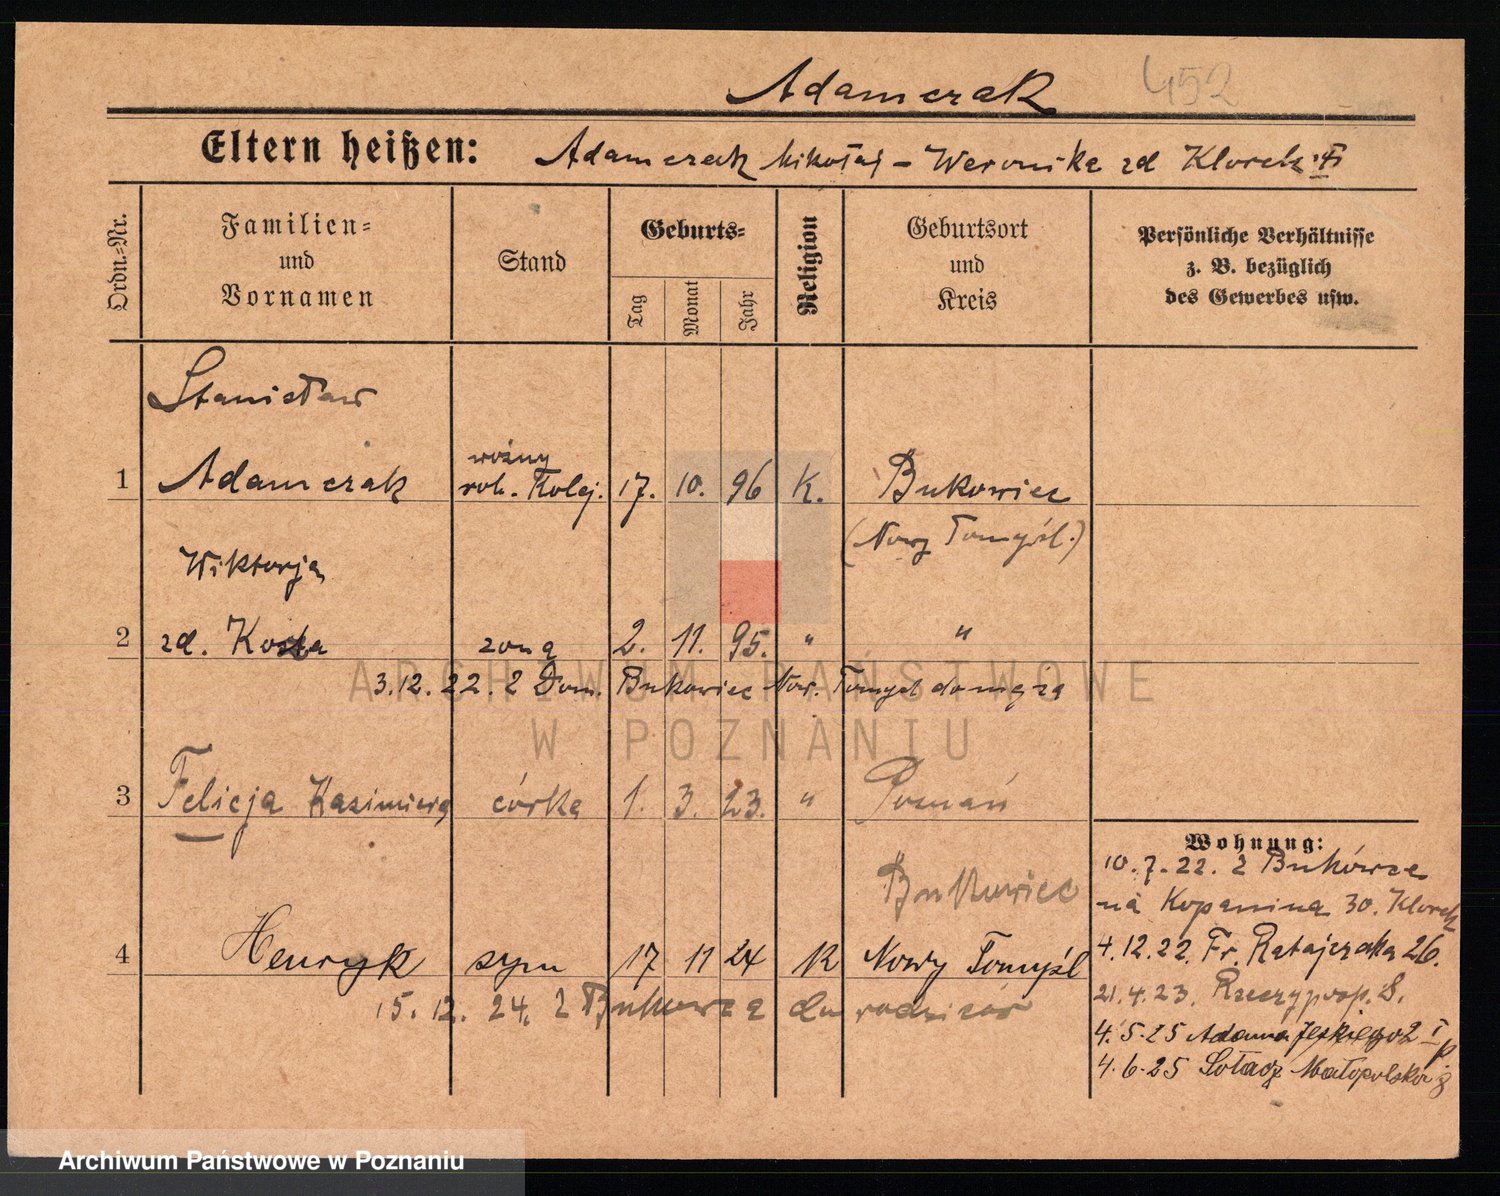 Adamczak 452
Eltern heißen: Adamczak Mikołaj – Weronika zd Klorek
Ordn.-Nr.
Familien-
und
Vornamen
Stand
Geburts-
Tag
Monat
Jahr
Religion
Geburtsort
und
Kreis
Persönliche Verhältnisse
z. B. bezüglich
des Gewerbes usw.
Stanisław
woźny
1 Adamczak rob. Kolej. 17. 10. 96 K. Bukowiec
(Nowy Tomyśl.)
Wiktorja
2 zd. Kosta żona 2. 11. 95. " "
3.12.22. z Dom. Bukowiec Now. Tomyśl do męża
ARCHIWUM PAŃSTWOWE
W POZNANIU
3 Felicja Kazimiera córka 1. 3. 23. " Poznań
Bukowiec
4 Henryk syn 17 11 24 K Nowy Tomyśl
15. 12. 24. z Bukowca do rodziców
Wohnung:
10.7.22. z Bukówca
na Kopanina 30. Klorek
4.12.22. Fr. Ratajczaka 26.
21.4.23. Rzeczyposp. 8.
4.5.25 Adama
4.6.25 Sołacz Małopolska
Archiwum Państwowe w Poznaniu